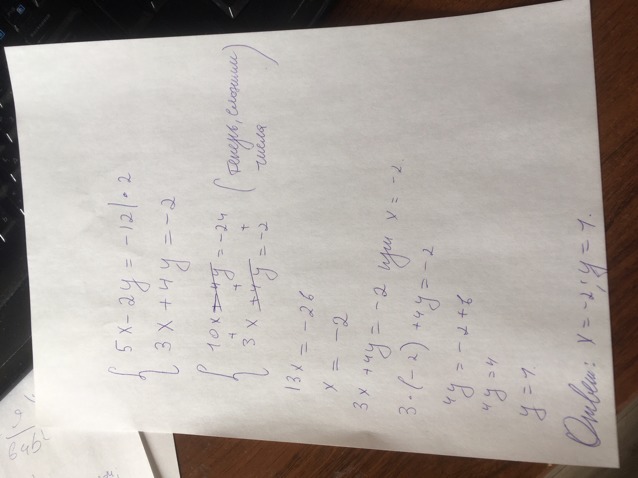 5x-2y=-12|·2
3x+4y=-2
10x-4y=-24 (теперь, сложим
3x+4y=-2 числа)
13x=-26
x=-2
3x+4y=-2 при x=-2
3·(-2)+4y=-2
4y=-2+6
4y=4
y=1.
Ответ: x=-2; y=1.